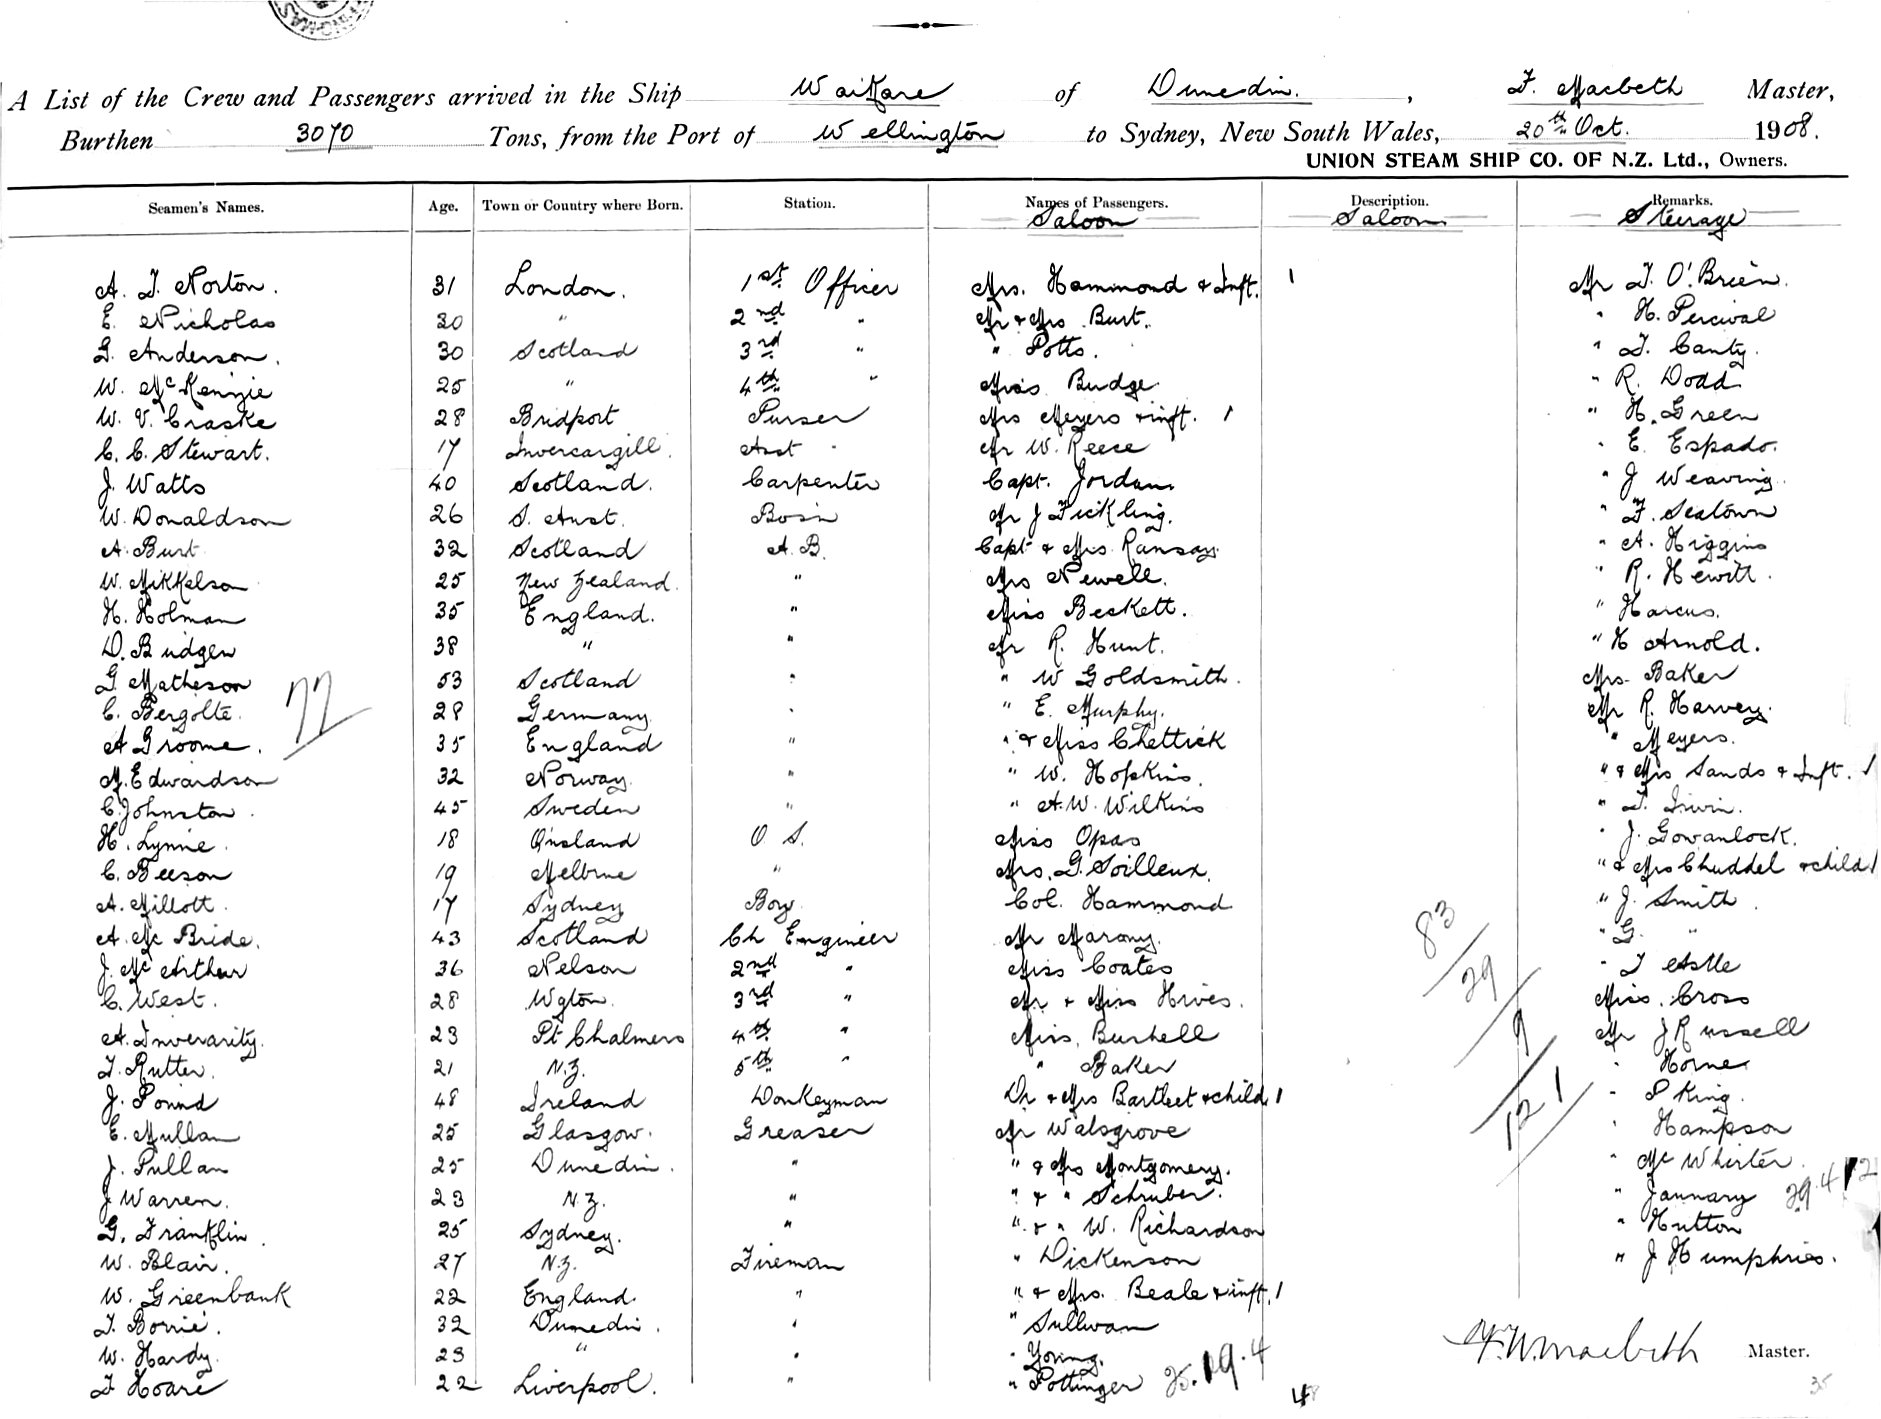 A List of the Crew and Passengers arrived in the Ship Waikare of Dunedin, F. Macbeth Master,
Burthen 3070 Tons, from the Port of Wellington to Sydney, New South Wales, 20th Oct. 1908.
UNION STEAM SHIP CO. OF N.Z. Ltd., Owners.
Seamen's Names. Age. Town or Country where Born. Station. Names of Passengers. Description. Remarks.
Saloon Saloon Steerage
A. T. Norton. 31 London. 1st Officer Mrs. Hammond & Inft. 1 Mr T. O'Brien.
E. Nicholas 30 " 2nd " Mr & Mrs Burt. " H. Percival
G. Anderson. 30 Scotland 3rd " " Potts. " T. Canty.
W. McKenzie 25 " 4th " Miss Budge. " R. Dodd
W. V. Craske 28 Bridport Purser Mrs Meyers & inft. 1 " H. Green
C. C. Stewart. 17 Invercargill Asst " Mr W. Reece " E. Espado.
J. Watts 40 Scotland. Carpenter Capt. Jordan. " J Weaving.
W. Donaldson 26 S. Aust. Bosin Mr J Fickling. " F. Seatown
A. Burt 32 Scotland A.B. Capt & Mrs Ramsay. " A. Higgins
W. Mikkelson 25 New Zealand. " Mrs Newell. " R. Hewitt.
H. Holman 35 England. " Miss Beckett. " Harcus.
D. Budgen 38 " " Mr R. Hunt. " H Arnold.
G. Matheson 53 Scotland " " W Goldsmith. Mrs. Baker
C. Bergolte. 28 Germany. " " E. Murphy. Mr R. Harvey.
77
A Groome. 35 England " " & Miss Chettick " Meyers.
M. Edwardson 32 Norway. " " W. Hopkins. " & Mrs Sands & Inft. 1
C. Johnston. 45 Sweden " " A.W. Wilkins " T. Irwin.
H. Lynne. 18 Q'nsland O S. Miss Opas " J. Gowanlock.
C. Beeson 19 Melbrne " Mrs. G. Soilleux. " & Mrs Chuddel & child 1
A. Millott. 17 Sydney Boy Col. Hammond " J. Smith.
A. Mc Bride. 43 Scotland Ch Engineer Mr Marony. " G. "
J. McArthur 36 Nelson 2nd " Miss Coates " T Astle
C. West. 28 Wgton. 3rd " Mr & Miss Hives. Miss. Cross
A. Inverarity. 23 Pt Chalmers 4th " Miss. Burhell Mr J Russell
T. Rutter. 21 N.Z. 5th " " Baker " Horne
J. Pound 48 Ireland Donkeyman Dr & Mrs Bartleet & child 1 " P King.
E. Mullan 25 Glasgow. Greaser Mr Walsgrove " Hampson
J. Pullan 25 Dunedin. " " & Mrs Montgomery. " McWhirter.
J Warren. 23 N.Z. " " & " Schruber. " January 29.4
G. Franklin. 25 Sydney. " " & " W. Richardson " Hutton
W. Blair. 27 N.Z. Fireman " Dickenson " J Humphries.
W. Greenbank 22 England. " " & Mrs. Beale & inft. 1
T. Borrie. 32 Dunedin. " " Sullivan
W. Hardy. 23 " " " Young.
T Hoare 22 Liverpool. " " Pottinger 25.19.4
83
29
9
121
F.W. Macbeth Master.
48
35